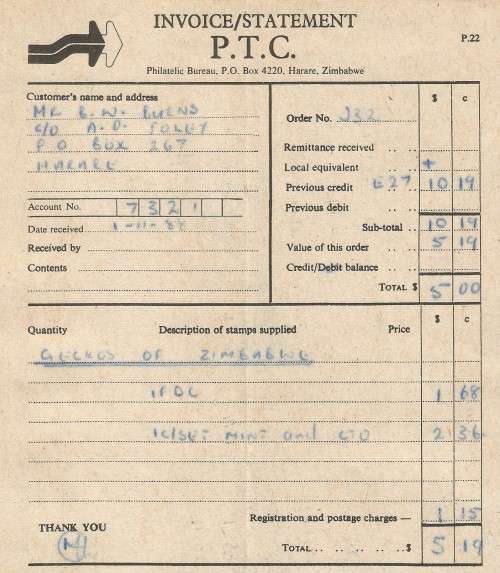 INVOICE/STATEMENT
P.T.C.
P.22
Philatelic Bureau, P.O. Box 4220, Harare, Zimbabwe
$ c
Customer's name and address
MR E. W. BURNS
C/O A. D. FOLEY
P O BOX 267
HARARE
Account No. 7321
Date received 1-11-89
Received by
Contents
Order No. J32
Remittance received
Local equivalent +
Previous credit E27 10 19
Previous debit
Sub-total 10 19
Value of this order 5 19
Credit/Debit balance
TOTAL $ 5 00
$ c
Quantity Description of stamps supplied Price
GECKOS OF ZIMBABWE
1FDC 1 68
1C/SET MINT and CTO 2 36
Registration and postage charges — 1 15
THANK YOU
TOTAL $ 5 19